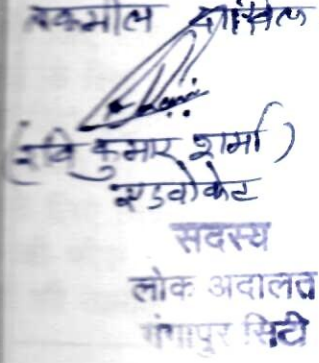 तकमील दाखिल
(रवि कुमार शर्मा)
एडवोकेट
सदस्य
लोक अदालत
गंगापुर सिटी